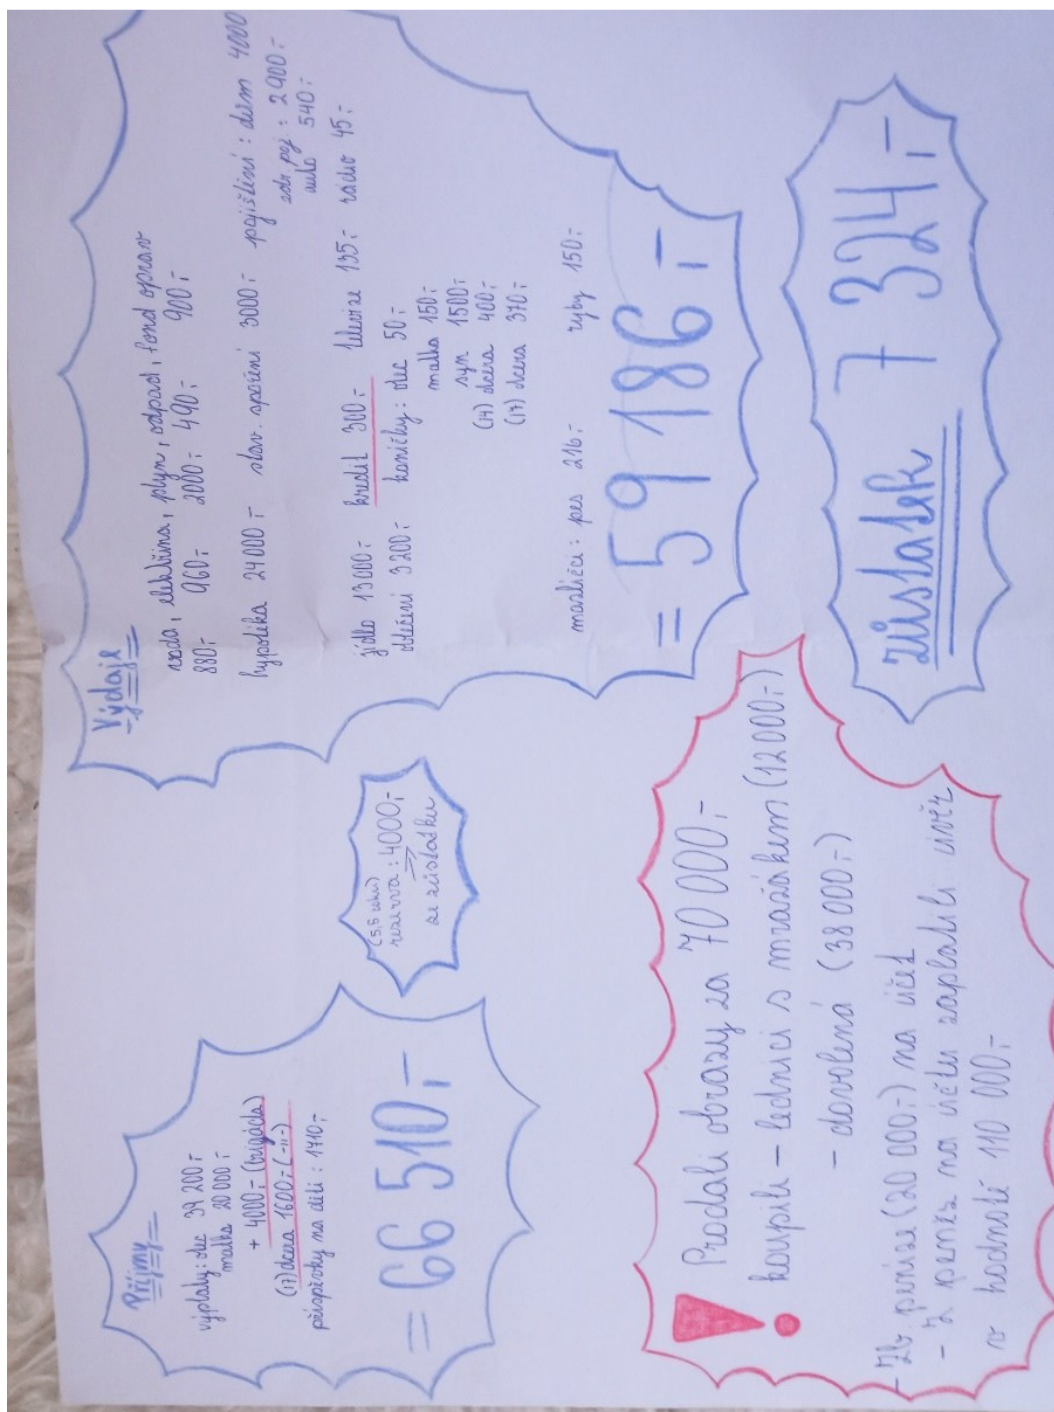 Příjmy
výplaty: otec 39 200,-
matka 20 000,-
+ 4000,- (brigáda)
(17) dcera 1600,- (-11-)
příspěvky na děti : 1710,-
= 66 510,-
(5,5 roku)
rezerva : 4000,-
ze zůstatku
Výdaje
voda, elektřina, plyn, odpad, fond oprav
880,- 960,- 2000,- 490,- 900,-
hypotéka 24000,- stav. spoření 3000,- pojištění : dům 4000
zdr. poj. : 2900,-
auto 540,-
jídlo 13000,- kredit 300,- televize 135,- rádio 45,-
oblečení 3200,- koníčky: otec 50,-
matka 150,-
syn 1500,-
(14) dcera 400,-
(17) dcera 370,-
mazlíčci : pes 216,- ryby 150,-
= 59 186,-
! Prodali obrazy za 70 000,-
koupili – lednici s mrazákem (12000,-)
– dovolená (38000,-)
- Zb. peníze (20 000,-) na účet
- Z peněz na účtu zaplatili úvěr
v hodnotě 110 000,-
Zůstatek 7 324,-